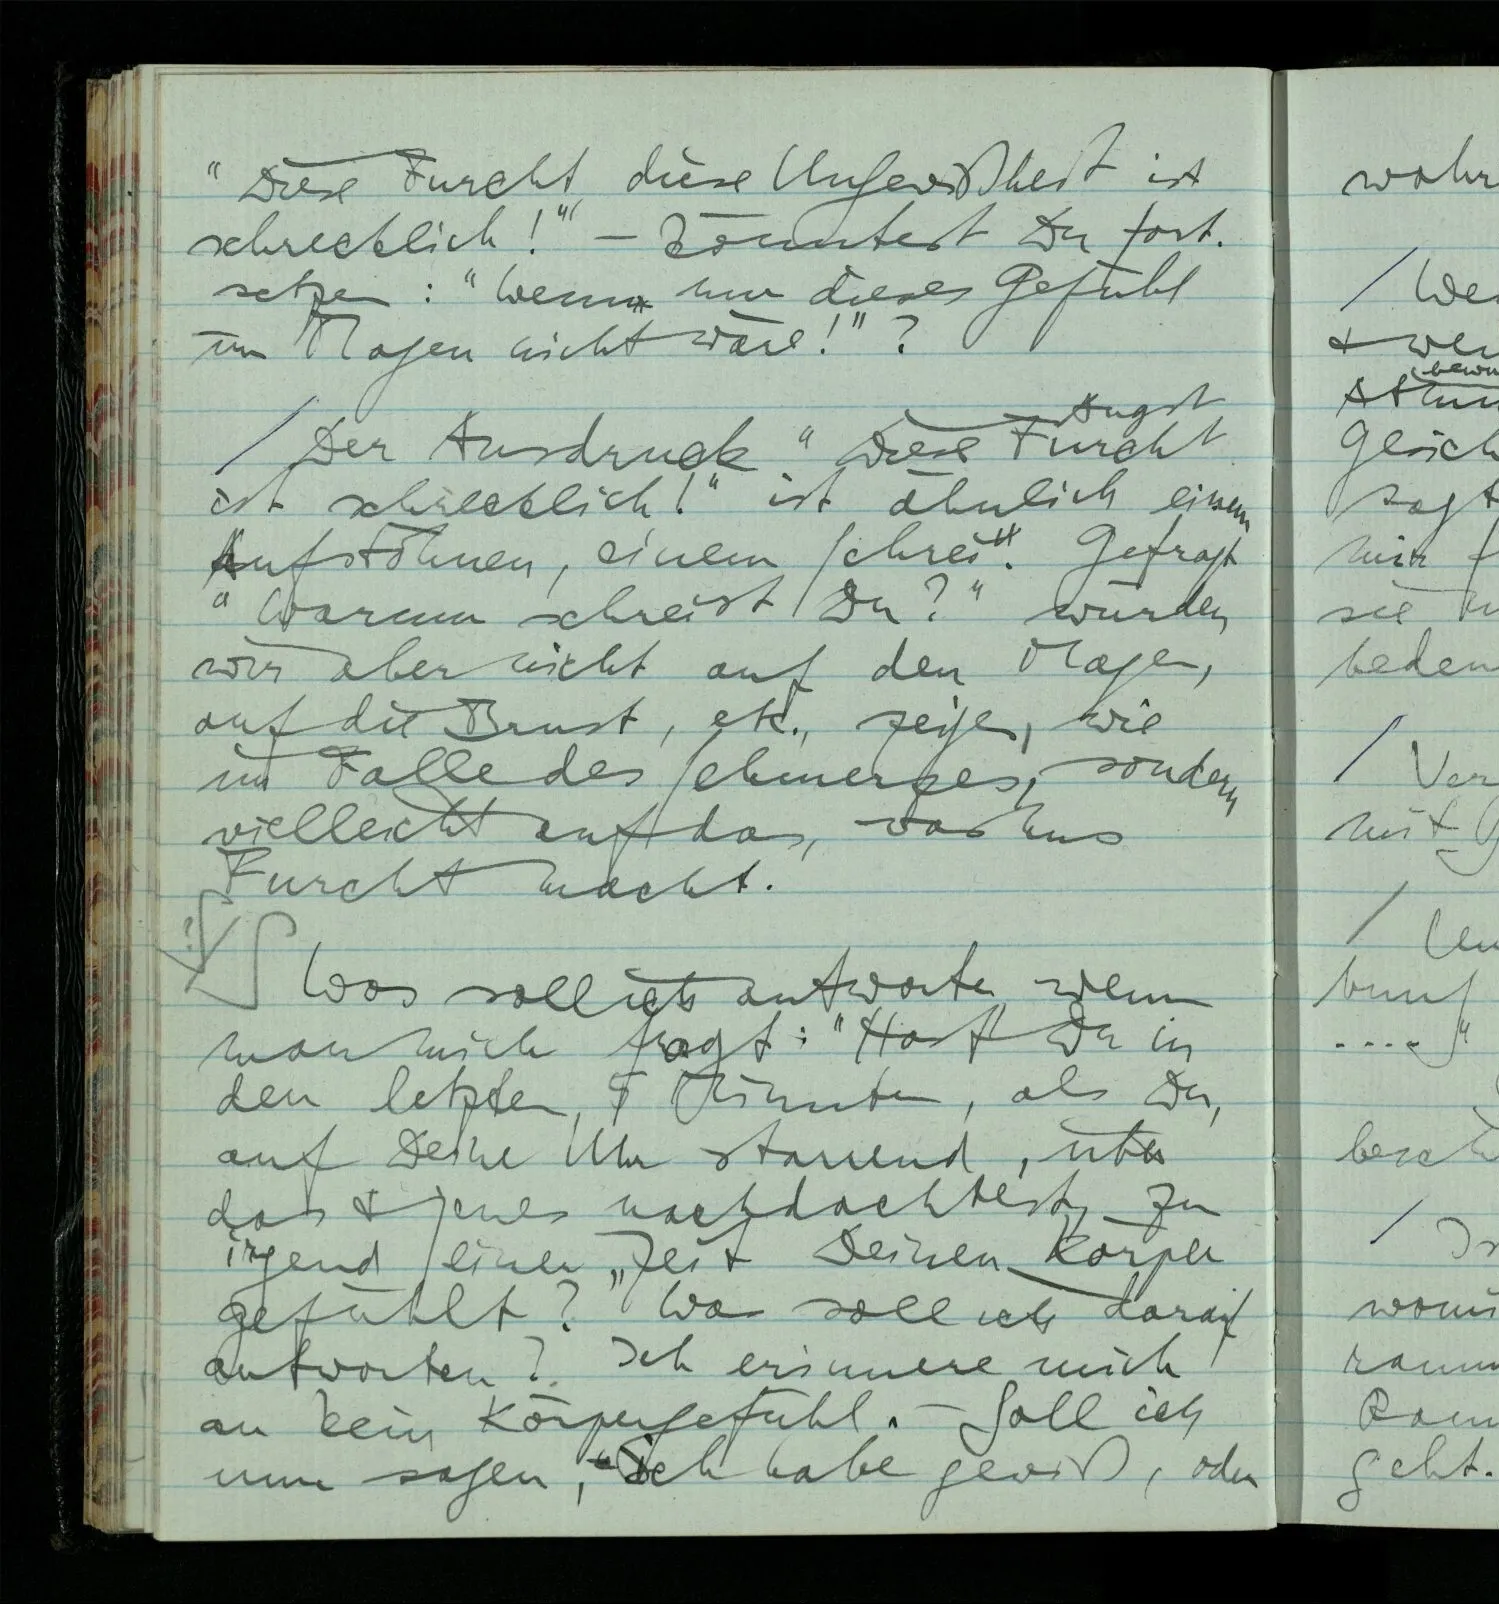 "Diese Furcht, diese Ungewißheit ist
schrecklich!" – könntest Du fort-
setzen: "Wenn nur dieses Gefühl
im Magen nicht wäre!"?
/ Der Ausdruck "Diese Furcht
Angst
ist schrecklich!" ist ähnlich einem
Aufstöhnen, einem Schrei". Gefragt
"Warum schreist Du?" würden
wir aber nicht auf den Magen,
auf die Brust, etc., zeigen, wie
im Falle des Schmerzes, sondern
vielleicht auf das, was uns
Furcht macht.
Was soll ich antworten wenn
man mich fragt: "Hast Du in
den letzten 5 Minuten, als Du,
auf Deine Uhr starrend, über
das & jenes nachdachtest, zu
irgend einer Zeit Deinen Körper
gefühlt?" Was soll ich darauf
antworten? Ich erinnere mich
an kein Körpergefühl. – Soll ich
nun sagen, "Ich habe gewiß, oder
wahr
/ We
& wen
bewu
Gesich
sagt
mir
sie
beden
/ Ver
mit
/
"
besch
/
raum
geht.